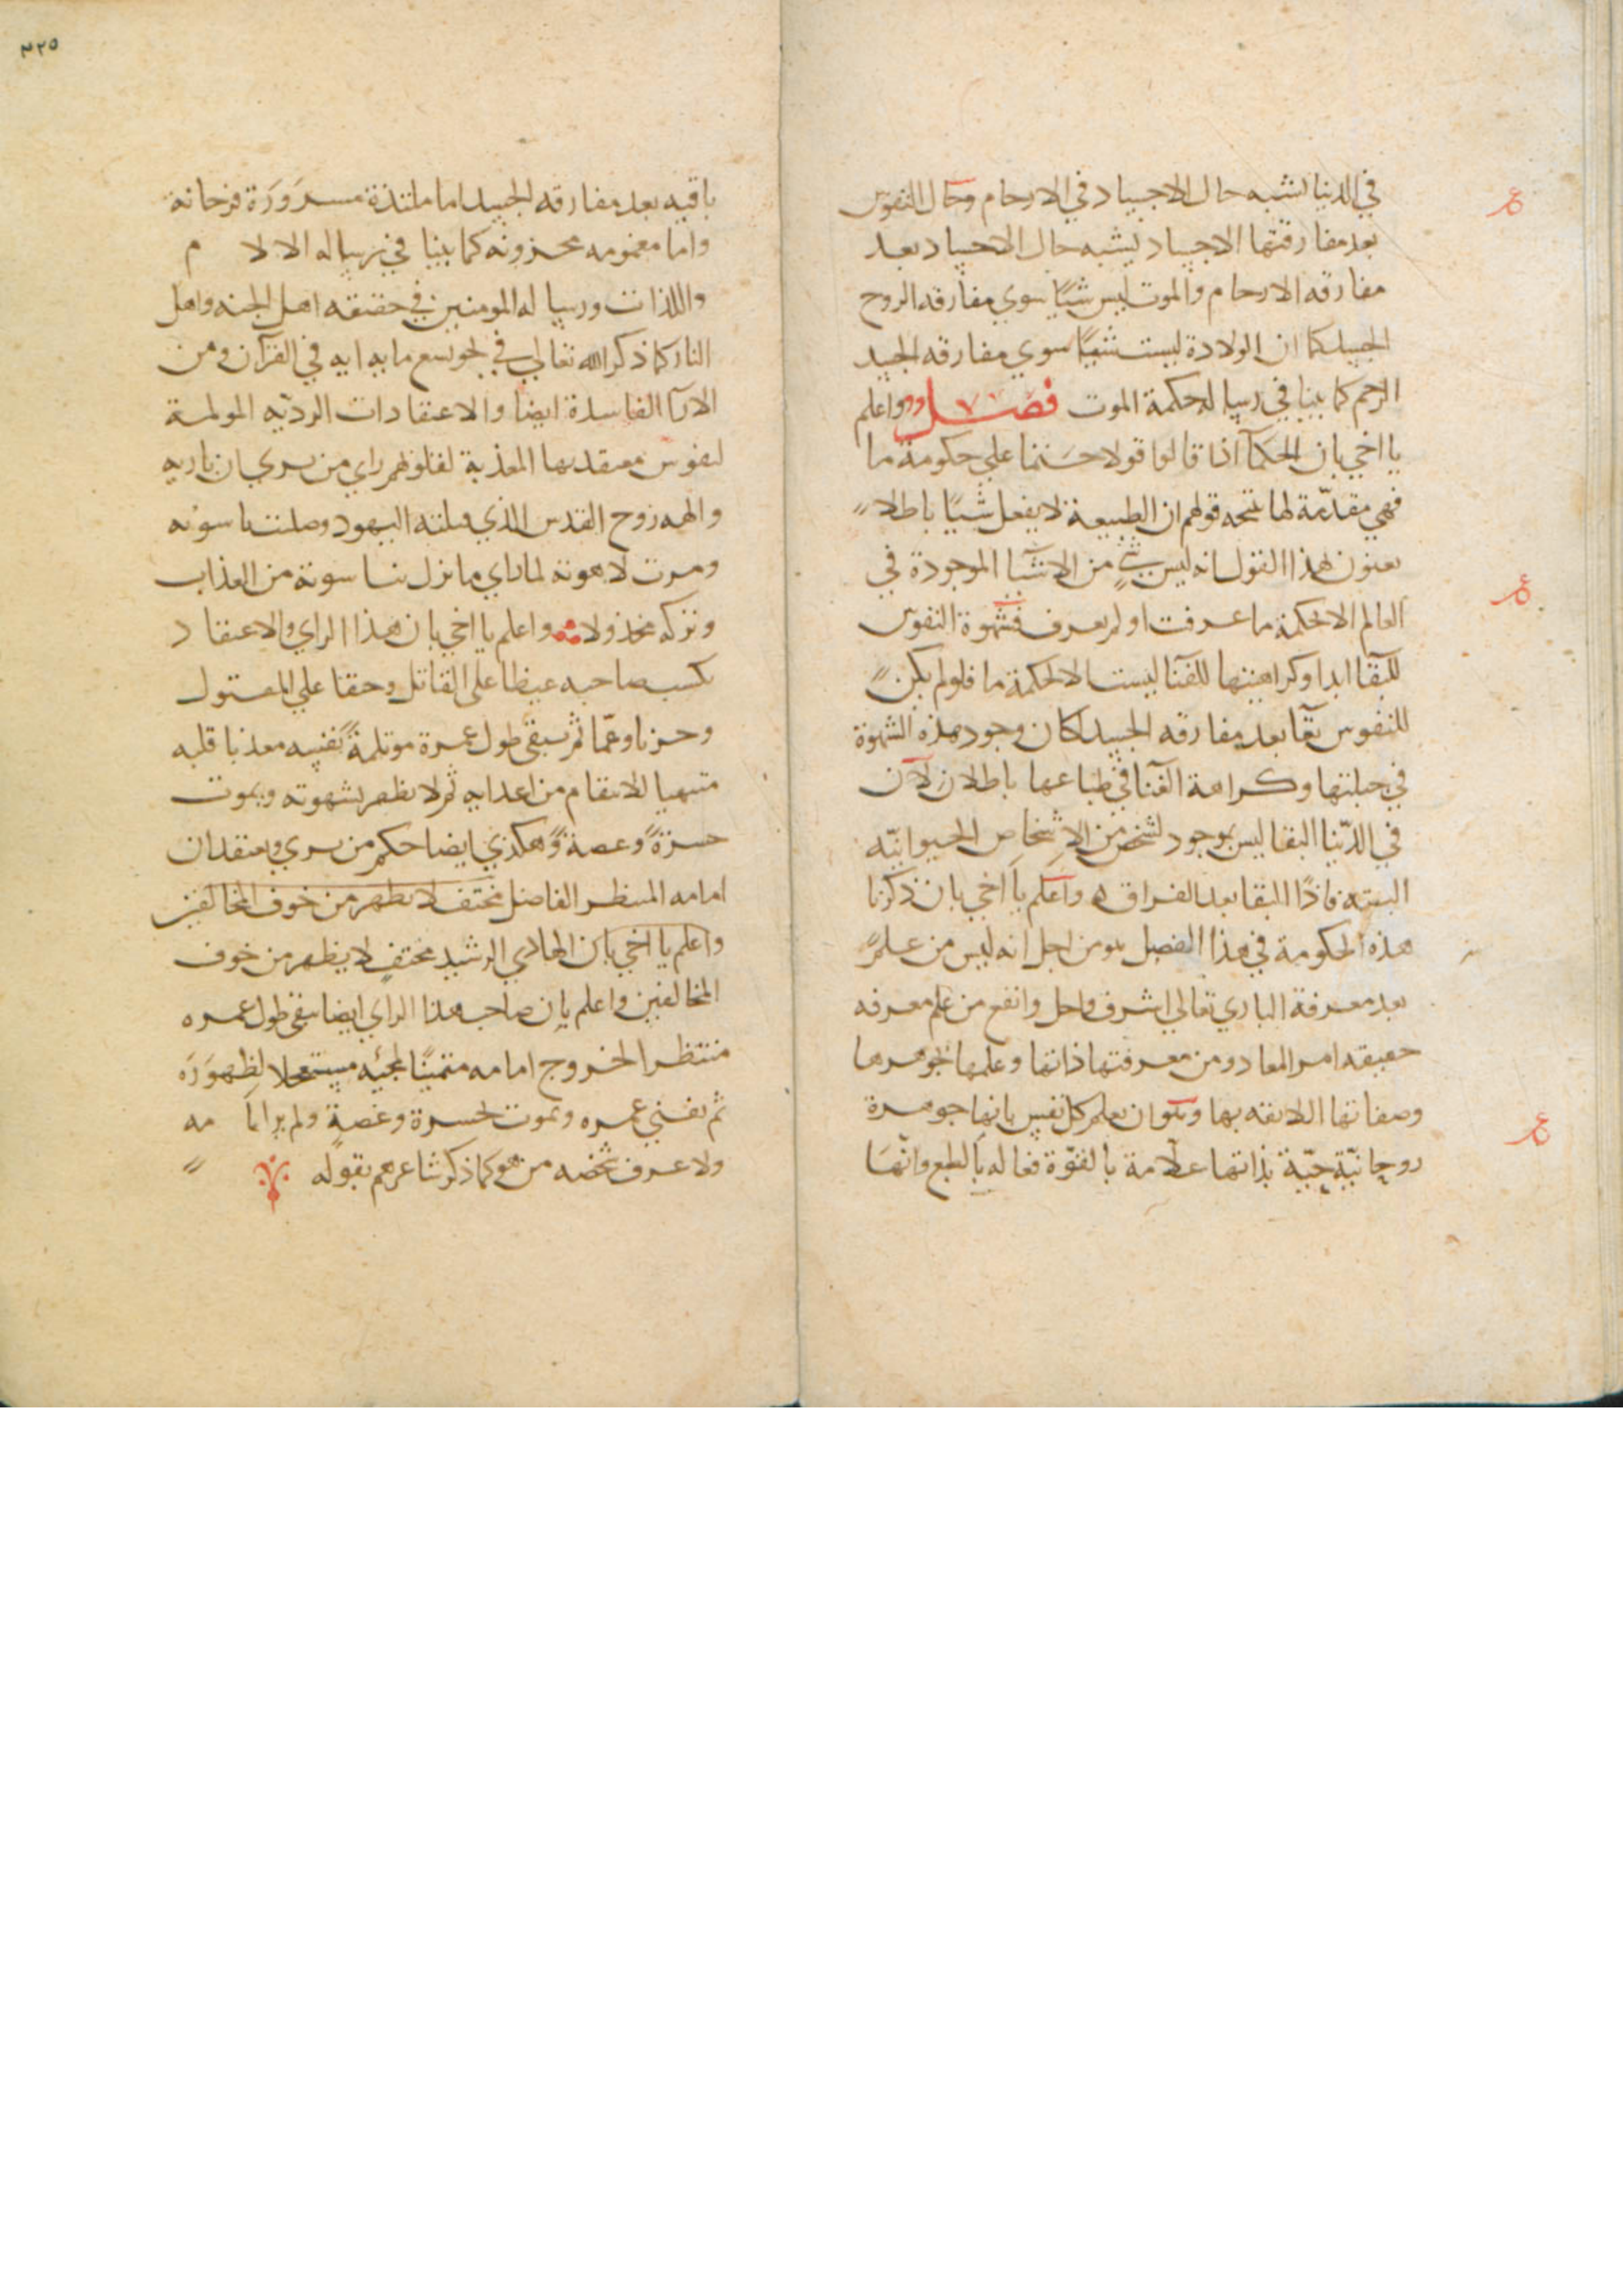 في الدنيا تشبه حال الاجساد في الارحام وحال النفوس
بعد مفارقتها الاجساد يشبه حال الاجساد بعد
مفارقه الارحام والموت ليس شيًا سوي مفارقه الروح
الجسد كما ان الولادة ليست شيًا سوي مفارقه الجسد
الرحم كما بينا في رساله حكمة الموت فصل واعلم
يا اخي بان الحكمآ اذا قالوا قولا حسنما علي حكومة ما
فهي مقدّمة لها نتيجه قولهم ان الطبيعة لا يفعل شيًا باطلا
يعنون بهذا القول انه ليس شيٍ من الاشيآ الموجودة في
العالم الا لحكمة ما عرفت او لم يعرف فشهوة النفوس
للبقا ابدا وكراهيتها للفنا ليست الا لحكمة ما فلو لم يكن
للنفوس بقآ بعد مفارقه الجسد لكان وجود هذه الشهوة
في جبلتها وكراهة الفنا في طباعها باطلا لان
في الدّنيا البقا ليس بموجود لشخص من الاشخاص الحيوانيّه
البته فاذًا البقا بعد الفراق ه واعلم يا اخي بان ذكرنا
هذه الحكومة في هذا الفصل هو من اجل انه ليس من علم
بعد معرفة الباري تعالي اشرف واجل وانفع من علم معرفه
حقيقه امر المعاد ومن معرفتها ذاتها وعلمها بجوهرها
وصفاتها اللايقه بها وهو ان يعلم كل نفس بانها جوهرة
روحانيّة حيّة بذاتها علّامة بالقوّة فعاله بالطبع وانّها
٣٢٥
باقيه بعد مفارقه الجسد اما ملتذة مسرورة فرحانة
واما مغمومه محزونه كما بينا في رساله الالا م
واللذات ورساله المومنين في حقيقه اهل الجنه واهل
النار كما ذكر الله تعالي في نحو سبع مايه ايه في القرآن ومن
الارآ الفاسدة ايضا والاعتقادات الرديّه المولمة
لنفوس معتقديها المعذبة لقلوبهم راي من يري ان باريه
والهه روح القدس الذي قتلته اليهود وصلبت ناسوته
وهربت لاهوته لما راي ما نزل بناسوته من العذاب
وتركه مخذولا واعلم يا اخي بان هذا الراي والاعتقاد
يكسب صاحبه غيظا علي القاتل وحقا علي المقتول
وحزنا وغمّا ثم يبقي طول عمرة موتلمةً نفسه معذبا قلبه
مشتهيا للانتقام من اعدايه ثم لا يظفر بشهوته ويموت
حسرةً وغصةً وهكذي ايضا حكم من يري ويعتقد ان
امامه المنتظر الفاضل مختف لا يظهر من خوف المخالفين
واعلم يا اخي بان الهادي الرشيد مختفٍ لا يظهر من خوف
المخالفين واعلم بان صاحب هذا الراي ايضا يبقي طول عمره
منتظرا لخروج امامه متمنيًا لمجئه مستعجلا لظهوره
ثم يفني عمره ويموت بحسرة وغصةٍ ولم ير اما مه
ولا عرف شخصه من هو كما ذكر شاعرهم بقوله